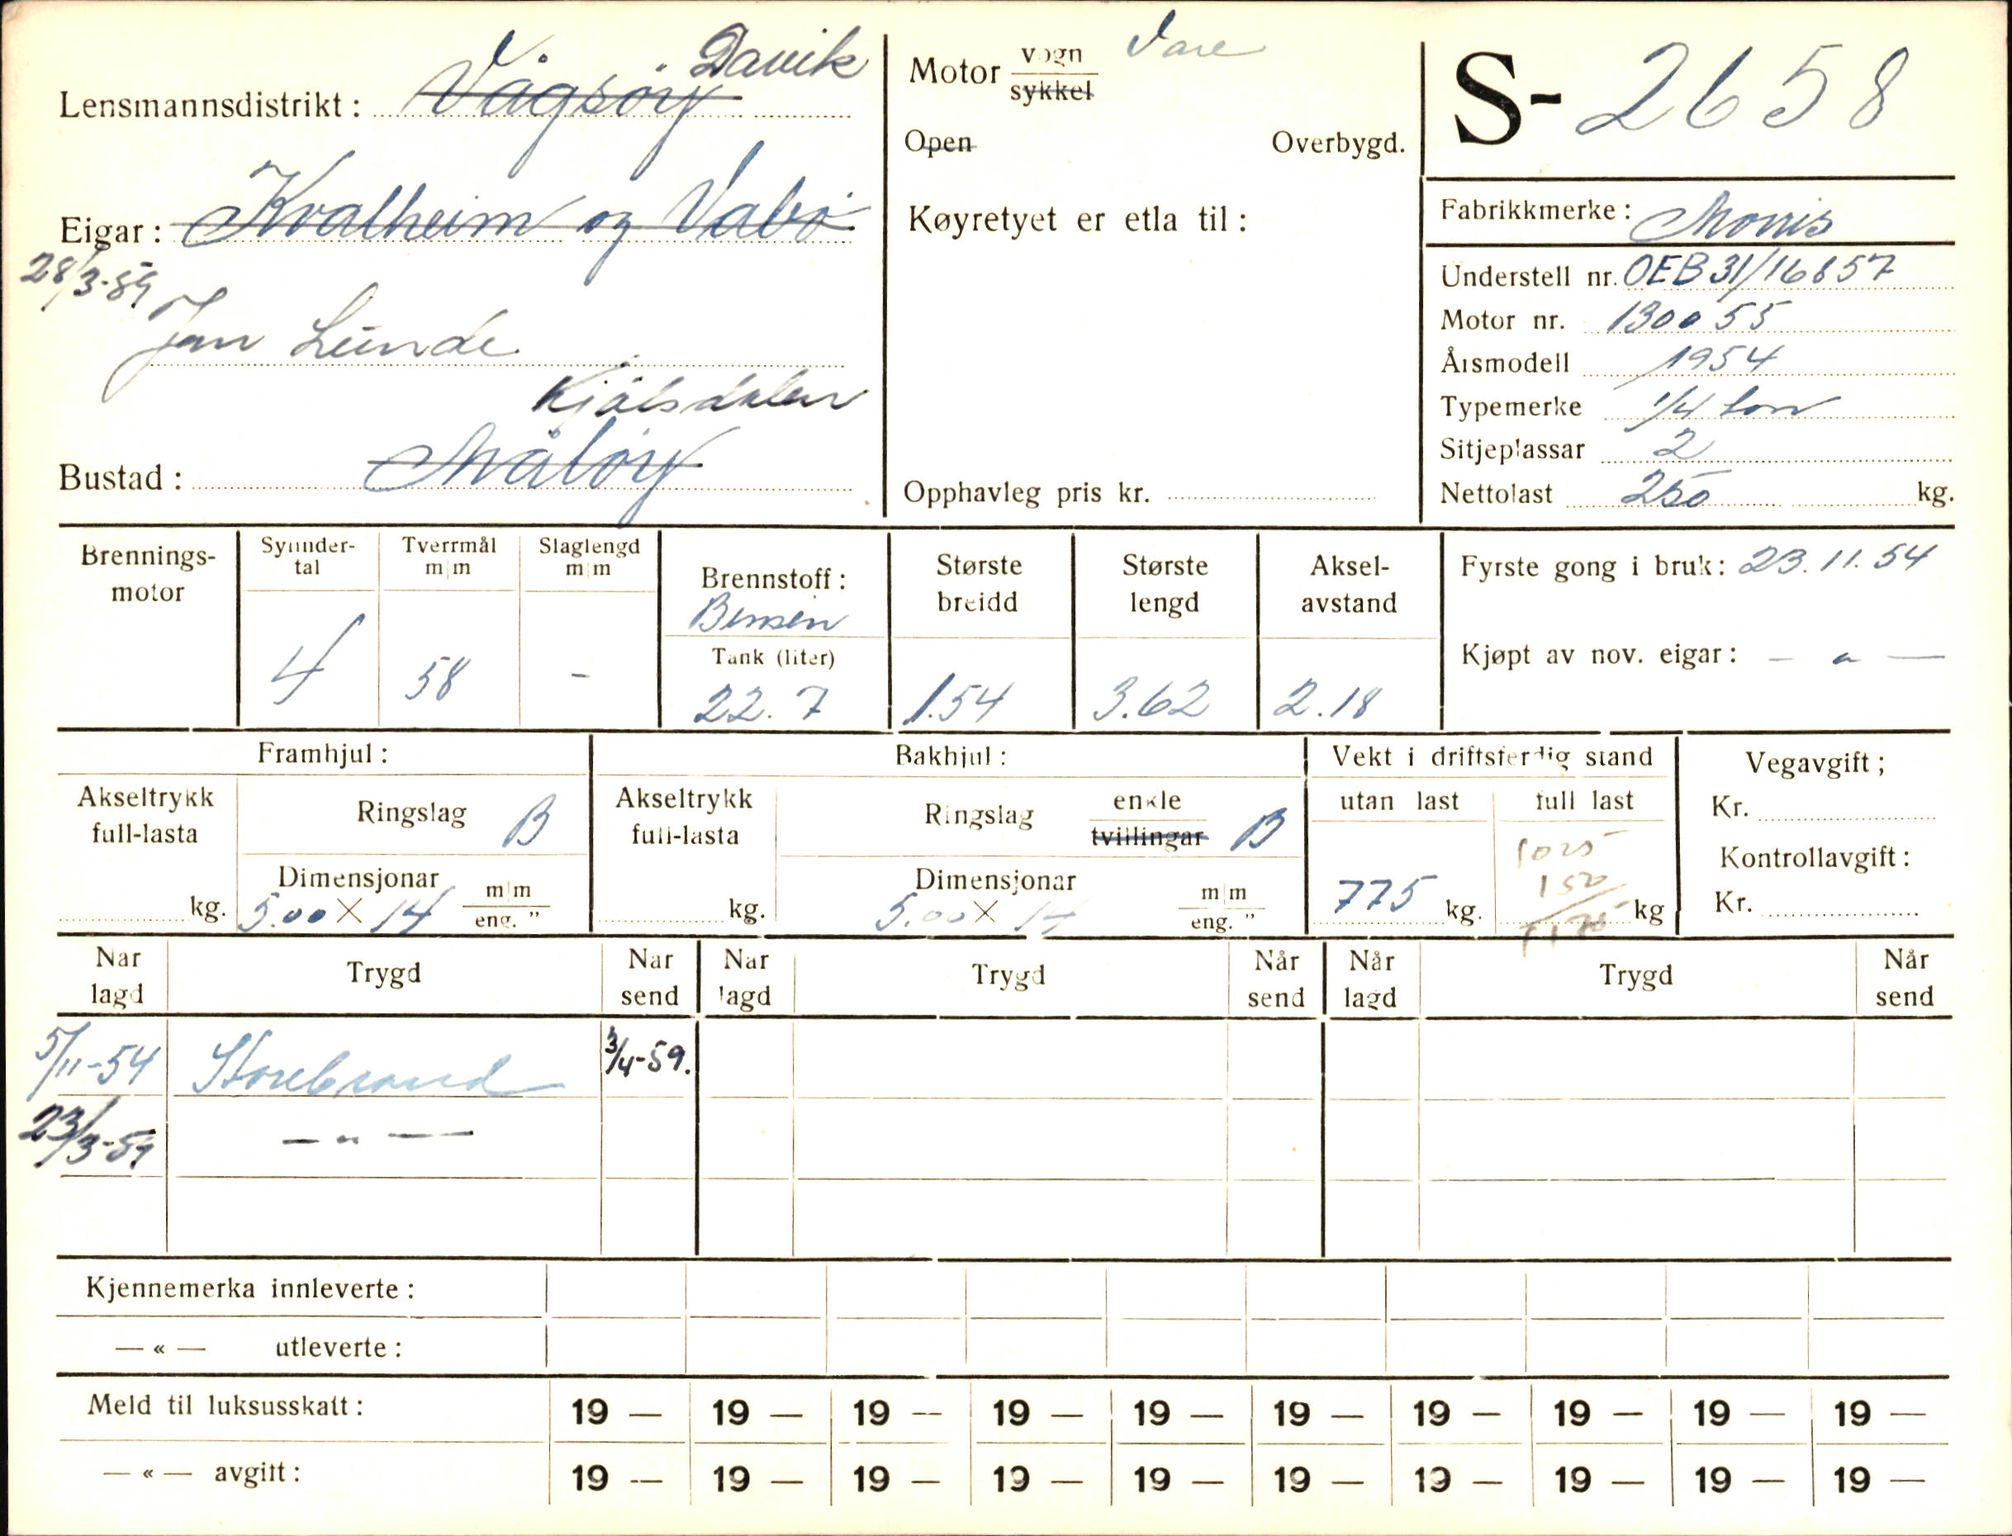 Lensmannsdistrikt: Vågsøy Davik
Eigar: Kvalheim og Vabø
28/3-59
Jan Lunde
Kjølsdalen
Bustad: Måløy
Motor vogn Vare
sykkel
Open Overbygd.
Køyretyet er etla til:
Opphavleg pris kr.
S- 2658
Fabrikkmerke: Morris
Understell nr. OEB31/16857
Motor nr. 130055
Årsmodell 1954
Typemerke 1/4 tonn
Sitjeplassar 2
Nettolast 250 kg.
Brennings-
motor
Sylinder-
tal
4
Tverrmål
m|m
58
Slaglengd
m|m
-
Brennstoff:
Bensin
Tank (liter)
22.7
Største
breidd
1.54
Største
lengd
3.62
Aksel-
avstand
2.18
Fyrste gong i bruk: 23.11.54
Kjøpt av nov. eigar: — " —
Framhjul:
Akseltrykk
full-lasta
kg.
Ringslag B
Dimensjonar
5.00 X 14 m|m
eng. "
Bakhjul:
Akseltrykk
full-lasta
kg.
Ringslag enkle
tvillingar B
Dimensjonar
5.00 X 14 m|m
eng. "
Vekt i driftsferdig stand
utan last
775 kg.
full last
1025
150
1175 kg
Vegavgift;
Kr.
Kontrollavgift:
Kr.
Når
lagd
Trygd
Når
send
Når
lagd
Trygd
Når
send
Når
lagd
Trygd
Når
send
5/11-54 Storebrand 3/4-59.
23/3-59 — " —
Kjennemerka innleverte:
— « — utleverte:
Meld til luksusskatt: 19 — 19 — 19 — 19 — 19 — 19 — 19 — 19 — 19 — 19 —
— « — avgift: 19 — 19 — 19 — 19 — 19 — 19 — 19 — 19 — 19 — 19 —